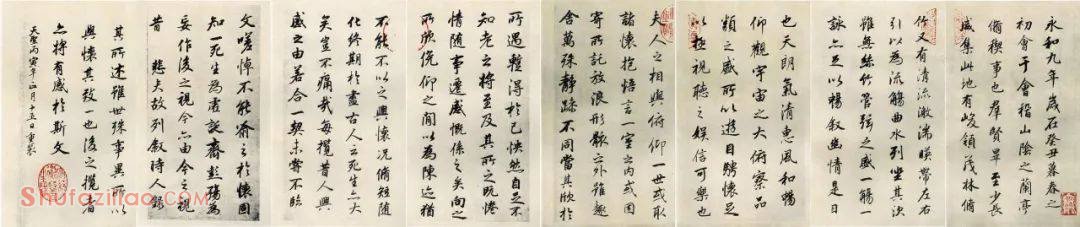 永和九年歲在癸丑暮春之
初會于會稽山陰之蘭亭
脩禊事也群賢畢至少長
咸集此地有峻領茂林脩
竹又有清流激湍暎帶左右
引以為流觴曲水列坐其次
雖無絲竹管弦之盛一觴一
詠亦足以暢敘幽情是日
也天朗氣清惠風和暢
仰觀宇宙之大俯察品
類之盛所以遊目騁懷足
以極視聽之娛信可樂也
夫人之相與俯仰一世或取
諸懷抱悟言一室之内或因
寄所託放浪形骸之外雖趣
舍萬殊靜躁不同當其欣於
所遇蹔得於己怏然自足不
知老之將至及其所之既惓
情隨事遷感慨係之矣向之
所欣俛仰之閒以為陳迹猶
不能不以之興懷況脩短隨
化終期於盡古人云死生亦大
矣豈不痛哉每攬昔人興
感之由若合一契未嘗不臨
文嗟悼不能喻之於懷固
知一死生為虛誕齊彭殤為
妄作後之視今亦由今之視
昔 悲夫故列敘時人錄
其所述雖世殊事異所以
興懷其致一也後之攬者
亦將有感於斯文
天聖丙寅年正月五日重裝
Shufaziliao.com